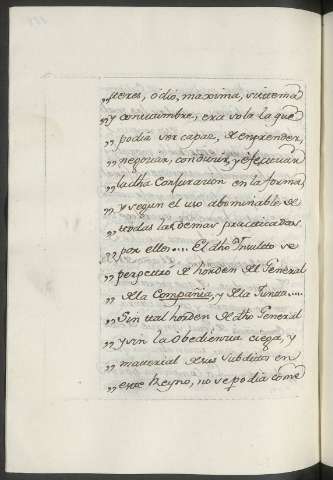 „teres, odio, maxima, sistema
„y costumbre, era sola la que
„podia ser capaz, de emprender,
„negociar, conducir, y efectuar
„la dha Conjuracion en la forma,
„y segun el uso abominable de
„todas las demas practicadas
„por ellos.... El dho Insulto se
„perpetró de horden del General
„de la Compañia, y de la Junta....
„Sin tal horden de dho General
„y sin la obediencia ciega, y
„material de sus subditos en
„este Reyno, no se podia come